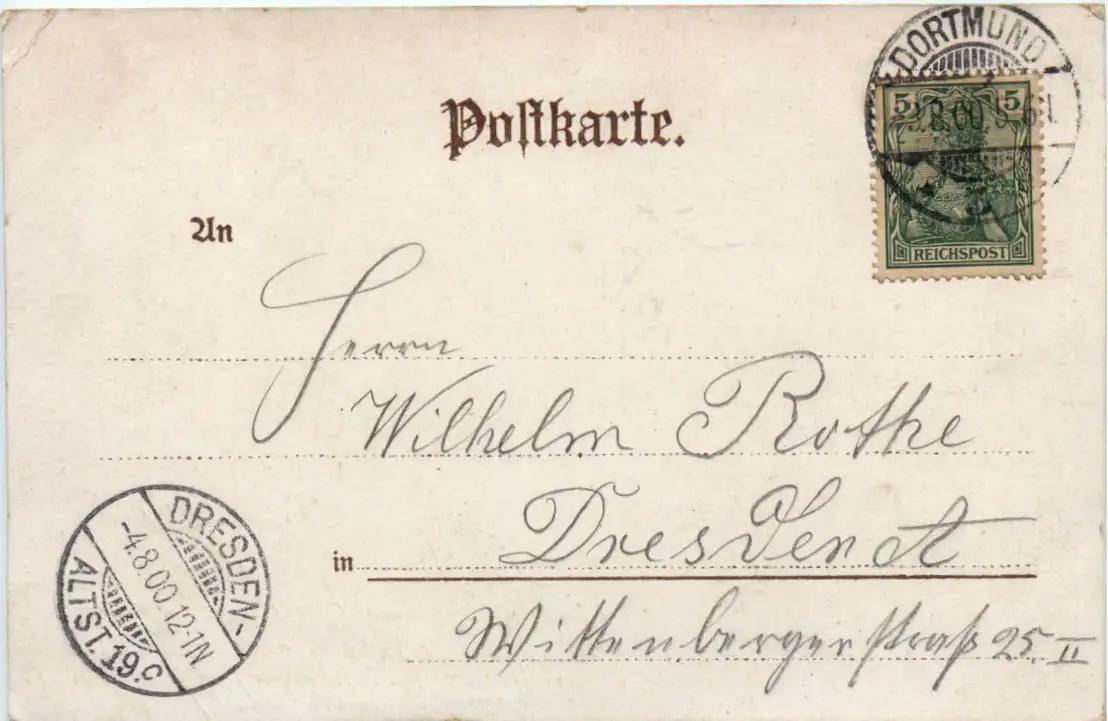 DORTMUND 7
3.8.00 5-6N.
5 5
REICHSPOST
Postkarte.
An
Herrn
Wilhelm Rothe
in Dresden A
Wittenbergerstraß 25 II
DRESDEN-
-4.8.00.12-1N
ALTST. 19.c